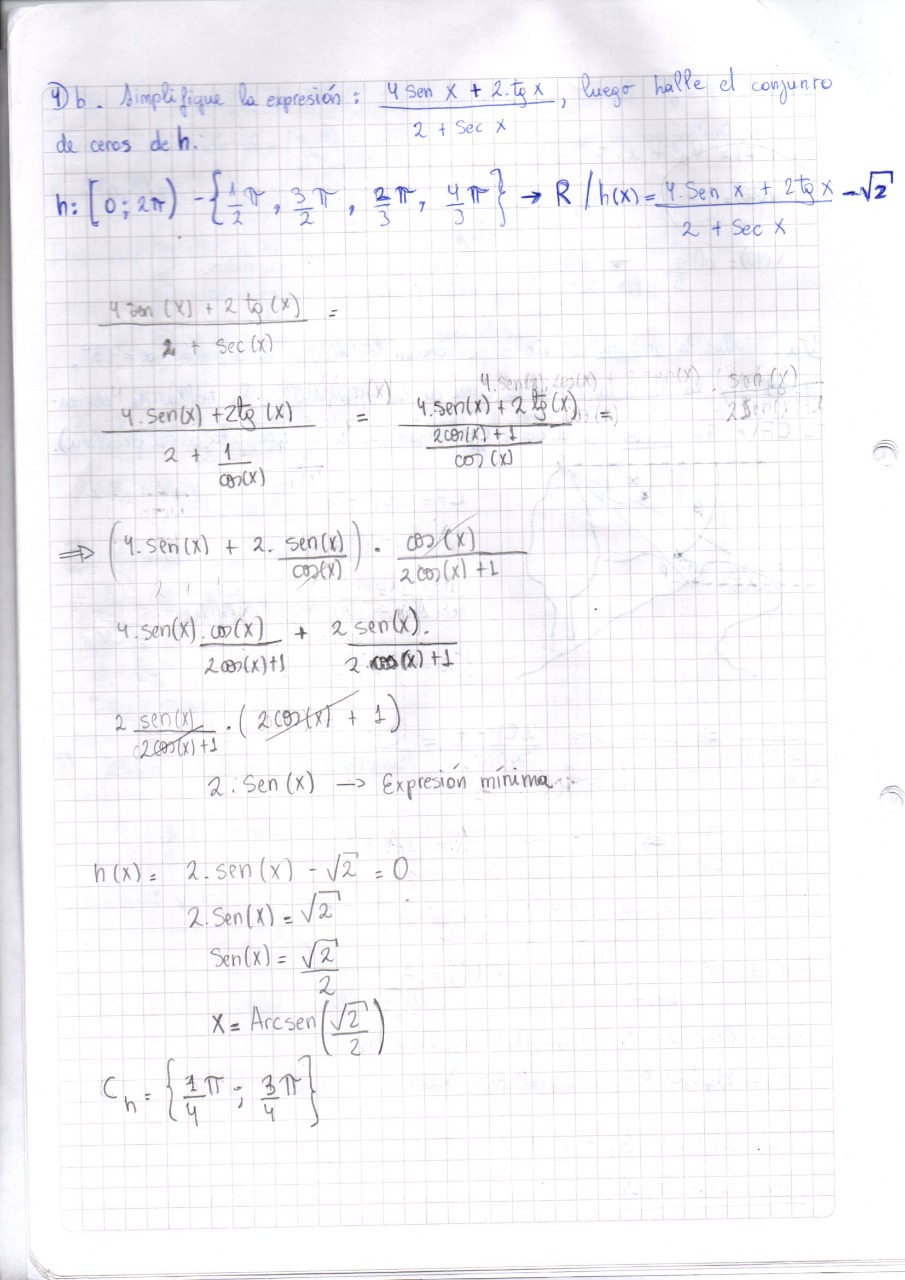 4) b. Simplifique la expresión: (4 sen x + 2.tg x) / (2 + sec x), luego halle el conjunto
de ceros de h.
h: [0; 2π) - {1/2 π, 3/2 π, 2/3 π, 4/3 π} → R / h(x) = (4.Sen x + 2tg x) / (2 + Sec x) - √2
(4 sen (x) + 2 tg (x)) / (2 + sec(x)) =
(4.sen(x) + 2tg (x)) / (2 + 1/cos(x)) = (4.sen(x) + 2 tg(x)) / ((2cos(x) + 1) / cos(x)) =
⇒ (4.sen(x) + 2. sen(x)/cos(x)) . cos(x) / (2cos(x) + 1)
4.sen(x).cos(x) / (2cos(x)+1) + 2 sen(x). / (2 cos(x) + 1)
2 sen(x) / (2cos(x)+1) . (2cos(x) + 1)
2.Sen(x) → Expresión mínima
h(x) = 2.sen(x) - √2 = 0
2.Sen(x) = √2
Sen(x) = √2/2
x = Arcsen(√2/2)
C_h = {1/4 π ; 3/4 π}